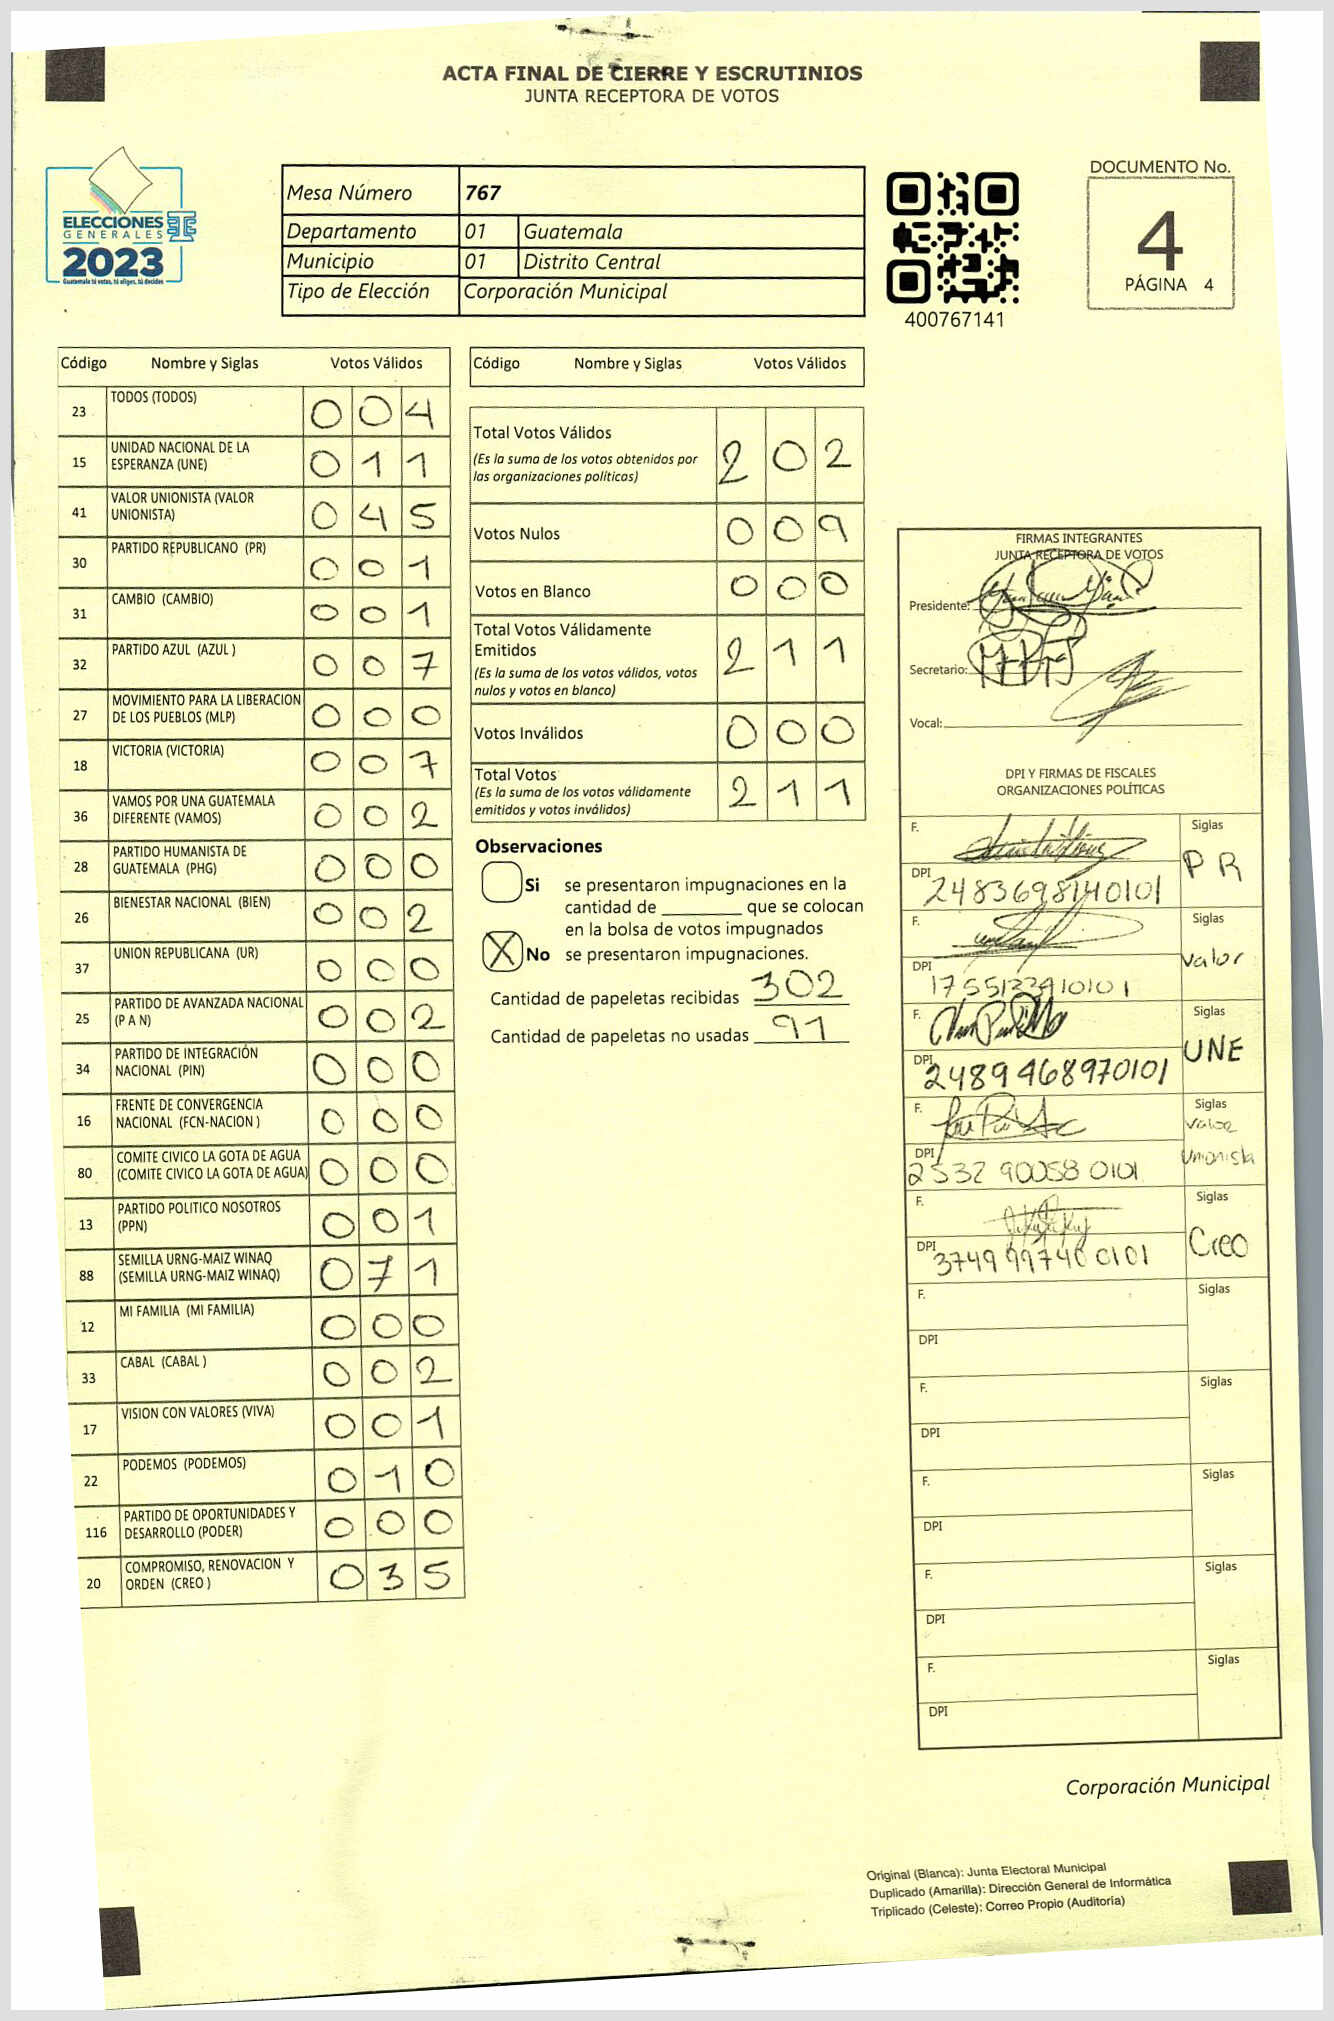 ACTA FINAL DE CIERRE Y ESCRUTINIOS
JUNTA RECEPTORA DE VOTOS
ELECCIONES
GENERALES
2023
Guatemala tú votas, tú eliges, tú decides
Mesa Número 767
Departamento 01 Guatemala
Municipio 01 Distrito Central
Tipo de Elección Corporación Municipal
400767141
DOCUMENTO No.
4
PÁGINA 4
Código Nombre y Siglas Votos Válidos
23 TODOS (TODOS) 0 0 4
15 UNIDAD NACIONAL DE LA
ESPERANZA (UNE) 0 1 1
41 VALOR UNIONISTA (VALOR
UNIONISTA) 0 4 5
30 PARTIDO REPUBLICANO (PR) 0 0 1
31 CAMBIO (CAMBIO) 0 0 1
32 PARTIDO AZUL (AZUL ) 0 0 7
27 MOVIMIENTO PARA LA LIBERACION
DE LOS PUEBLOS (MLP) 0 0 0
18 VICTORIA (VICTORIA) 0 0 7
36 VAMOS POR UNA GUATEMALA
DIFERENTE (VAMOS) 0 0 2
28 PARTIDO HUMANISTA DE
GUATEMALA (PHG) 0 0 0
26 BIENESTAR NACIONAL (BIEN) 0 0 2
37 UNION REPUBLICANA (UR) 0 0 0
25 PARTIDO DE AVANZADA NACIONAL
(P A N) 0 0 2
34 PARTIDO DE INTEGRACIÓN
NACIONAL (PIN) 0 0 0
16 FRENTE DE CONVERGENCIA
NACIONAL (FCN-NACION ) 0 0 0
80 COMITE CIVICO LA GOTA DE AGUA
(COMITE CIVICO LA GOTA DE AGUA) 0 0 0
13 PARTIDO POLITICO NOSOTROS
(PPN) 0 0 1
88 SEMILLA URNG-MAIZ WINAQ
(SEMILLA URNG-MAIZ WINAQ) 0 7 1
12 MI FAMILIA (MI FAMILIA) 0 0 0
33 CABAL (CABAL ) 0 0 2
17 VISION CON VALORES (VIVA) 0 0 1
22 PODEMOS (PODEMOS) 0 1 0
116 PARTIDO DE OPORTUNIDADES Y
DESARROLLO (PODER) 0 0 0
20 COMPROMISO, RENOVACION Y
ORDEN (CREO ) 0 3 5
Código Nombre y Siglas Votos Válidos
Total Votos Válidos 2 0 2
(Es la suma de los votos obtenidos por
las organizaciones políticas)
Votos Nulos 0 0 9
Votos en Blanco 0 0 0
Total Votos Válidamente
Emitidos 2 1 1
(Es la suma de los votos válidos, votos
nulos y votos en blanco)
Votos Inválidos 0 0 0
Total Votos 2 1 1
(Es la suma de los votos válidamente
emitidos y votos inválidos)
Observaciones
Si se presentaron impugnaciones en la
cantidad de ________ que se colocan
en la bolsa de votos impugnados
X No se presentaron impugnaciones.
Cantidad de papeletas recibidas 302
Cantidad de papeletas no usadas 91
FIRMAS INTEGRANTES
JUNTA RECEPTORA DE VOTOS
Presidente:
Secretario:
Vocal:
DPI Y FIRMAS DE FISCALES
ORGANIZACIONES POLÍTICAS
F. Siglas
DPI 2483698140101 PR
F. Siglas
DPI valor
F. Siglas
DPI 2489468970101 UNE
F. Siglas
DPI 2532 90058 0101 Valor
Unionista
F. Siglas
DPI Creo
F. Siglas
DPI
F. Siglas
DPI
F. Siglas
DPI
F. Siglas
DPI
F. Siglas
DPI
Corporación Municipal
Original (Blanca): Junta Electoral Municipal
Duplicado (Amarilla): Dirección General de Informática
Triplicado (Celeste): Correo Propio (Auditoría)